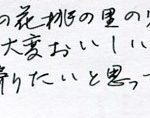 の花桃の里の
大変おいしい
帰りたいと思っ